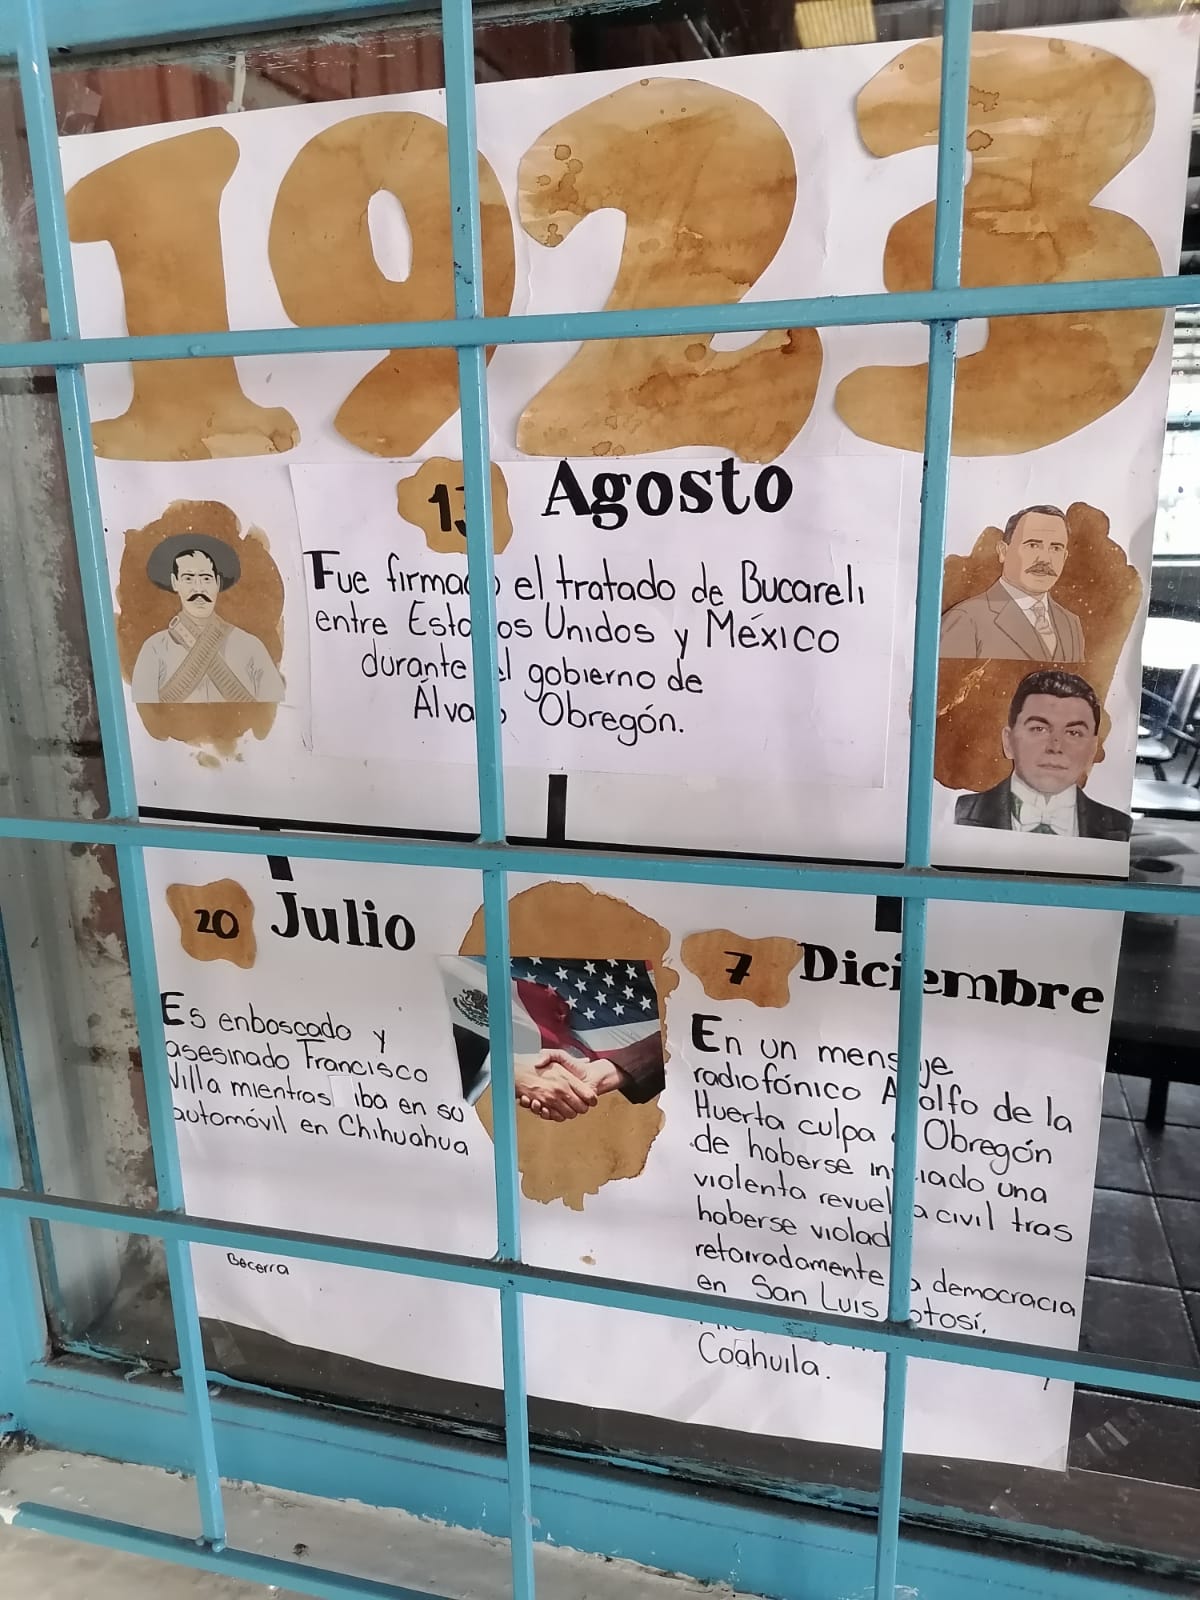 1923
13 Agosto
Fue firmado el tratado de Bucareli
entre Estados Unidos y México
durante el gobierno de
Álvaro Obregón.
20 Julio
Es enboscado y
asesinado Francisco
Villa mientras iba en su
automóvil en Chihuahua
Becerra
7 Diciembre
En un mensaje
radiofónico Adolfo de la
Huerta culpa a Obregón
de haberse iniciado una
violenta revuelta civil tras
haberse violado
reteirradamente la democracia
en San Luis Potosí,
Coahuila.